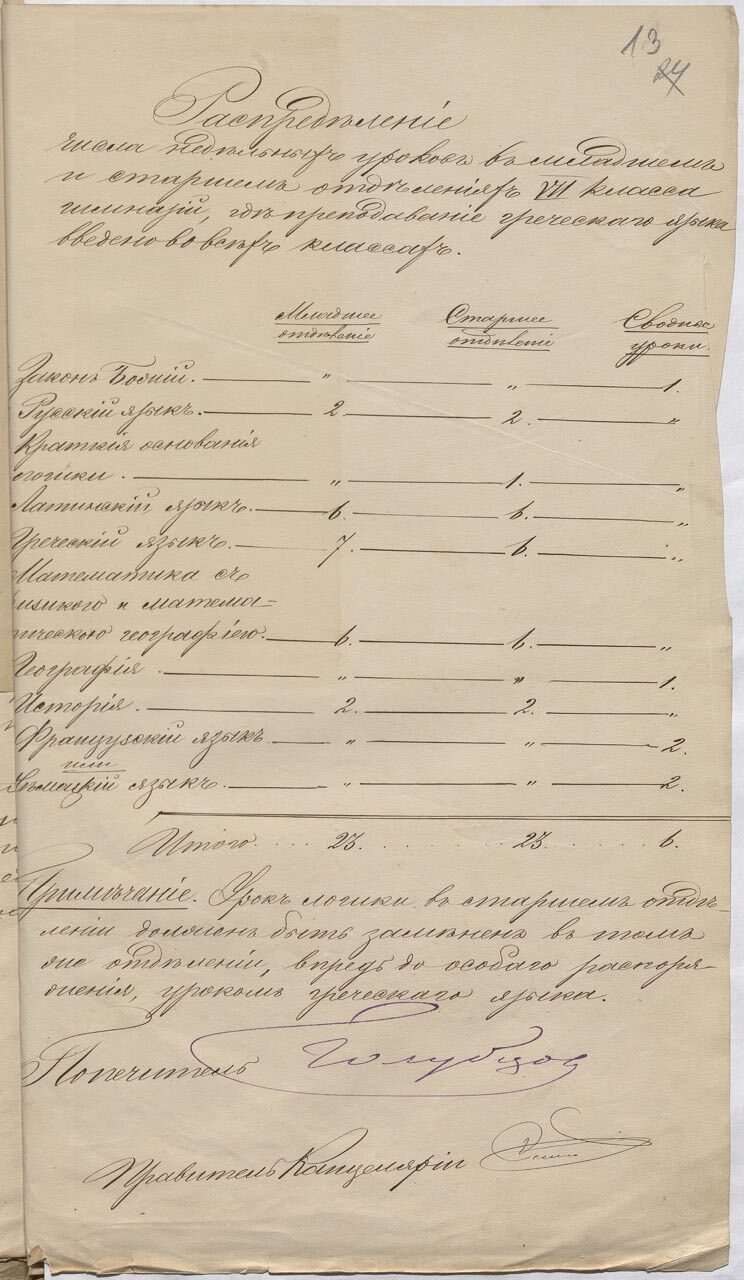 13
24
Распредѣленіе
числа недѣльныхъ уроковъ въ младшемъ
и старшемъ отдѣленіяхъ VII класса
гимназій, гдѣ преподаваніе греческаго языка
введено во всѣхъ классахъ.
Младшее отдѣленіе Старшее отдѣленіе Сводные уроки.
Законъ Божій. — „ — „ — 1.
Русскій языкъ. — 2. — 2. — „
Краткія основанія
логики. — „ — 1. — „
Латинскій языкъ. — 6. — 6. — „
Греческій языкъ. — 7. — 6. — „
Математика съ
физикою и матема=
тическою географіею. — 6. — 6. — „
Географія. — „ — „ — 1.
Исторія. — 2. — 2. — „
Французскій языкъ. — „ — „ — 2.
или
Нѣмецкій языкъ. — „ — „ — 2.
Итого. . . . 23. . . . . . 23. . . . 6.
Примѣчаніе. Урокъ логики въ старшемъ отдѣ-
леніи долженъ быть замѣненъ въ томъ
же отдѣленіи, впредь до особаго распоря-
женія, урокомъ греческаго языка.
Попечитель Голубцов
Правитель Канцеляріи